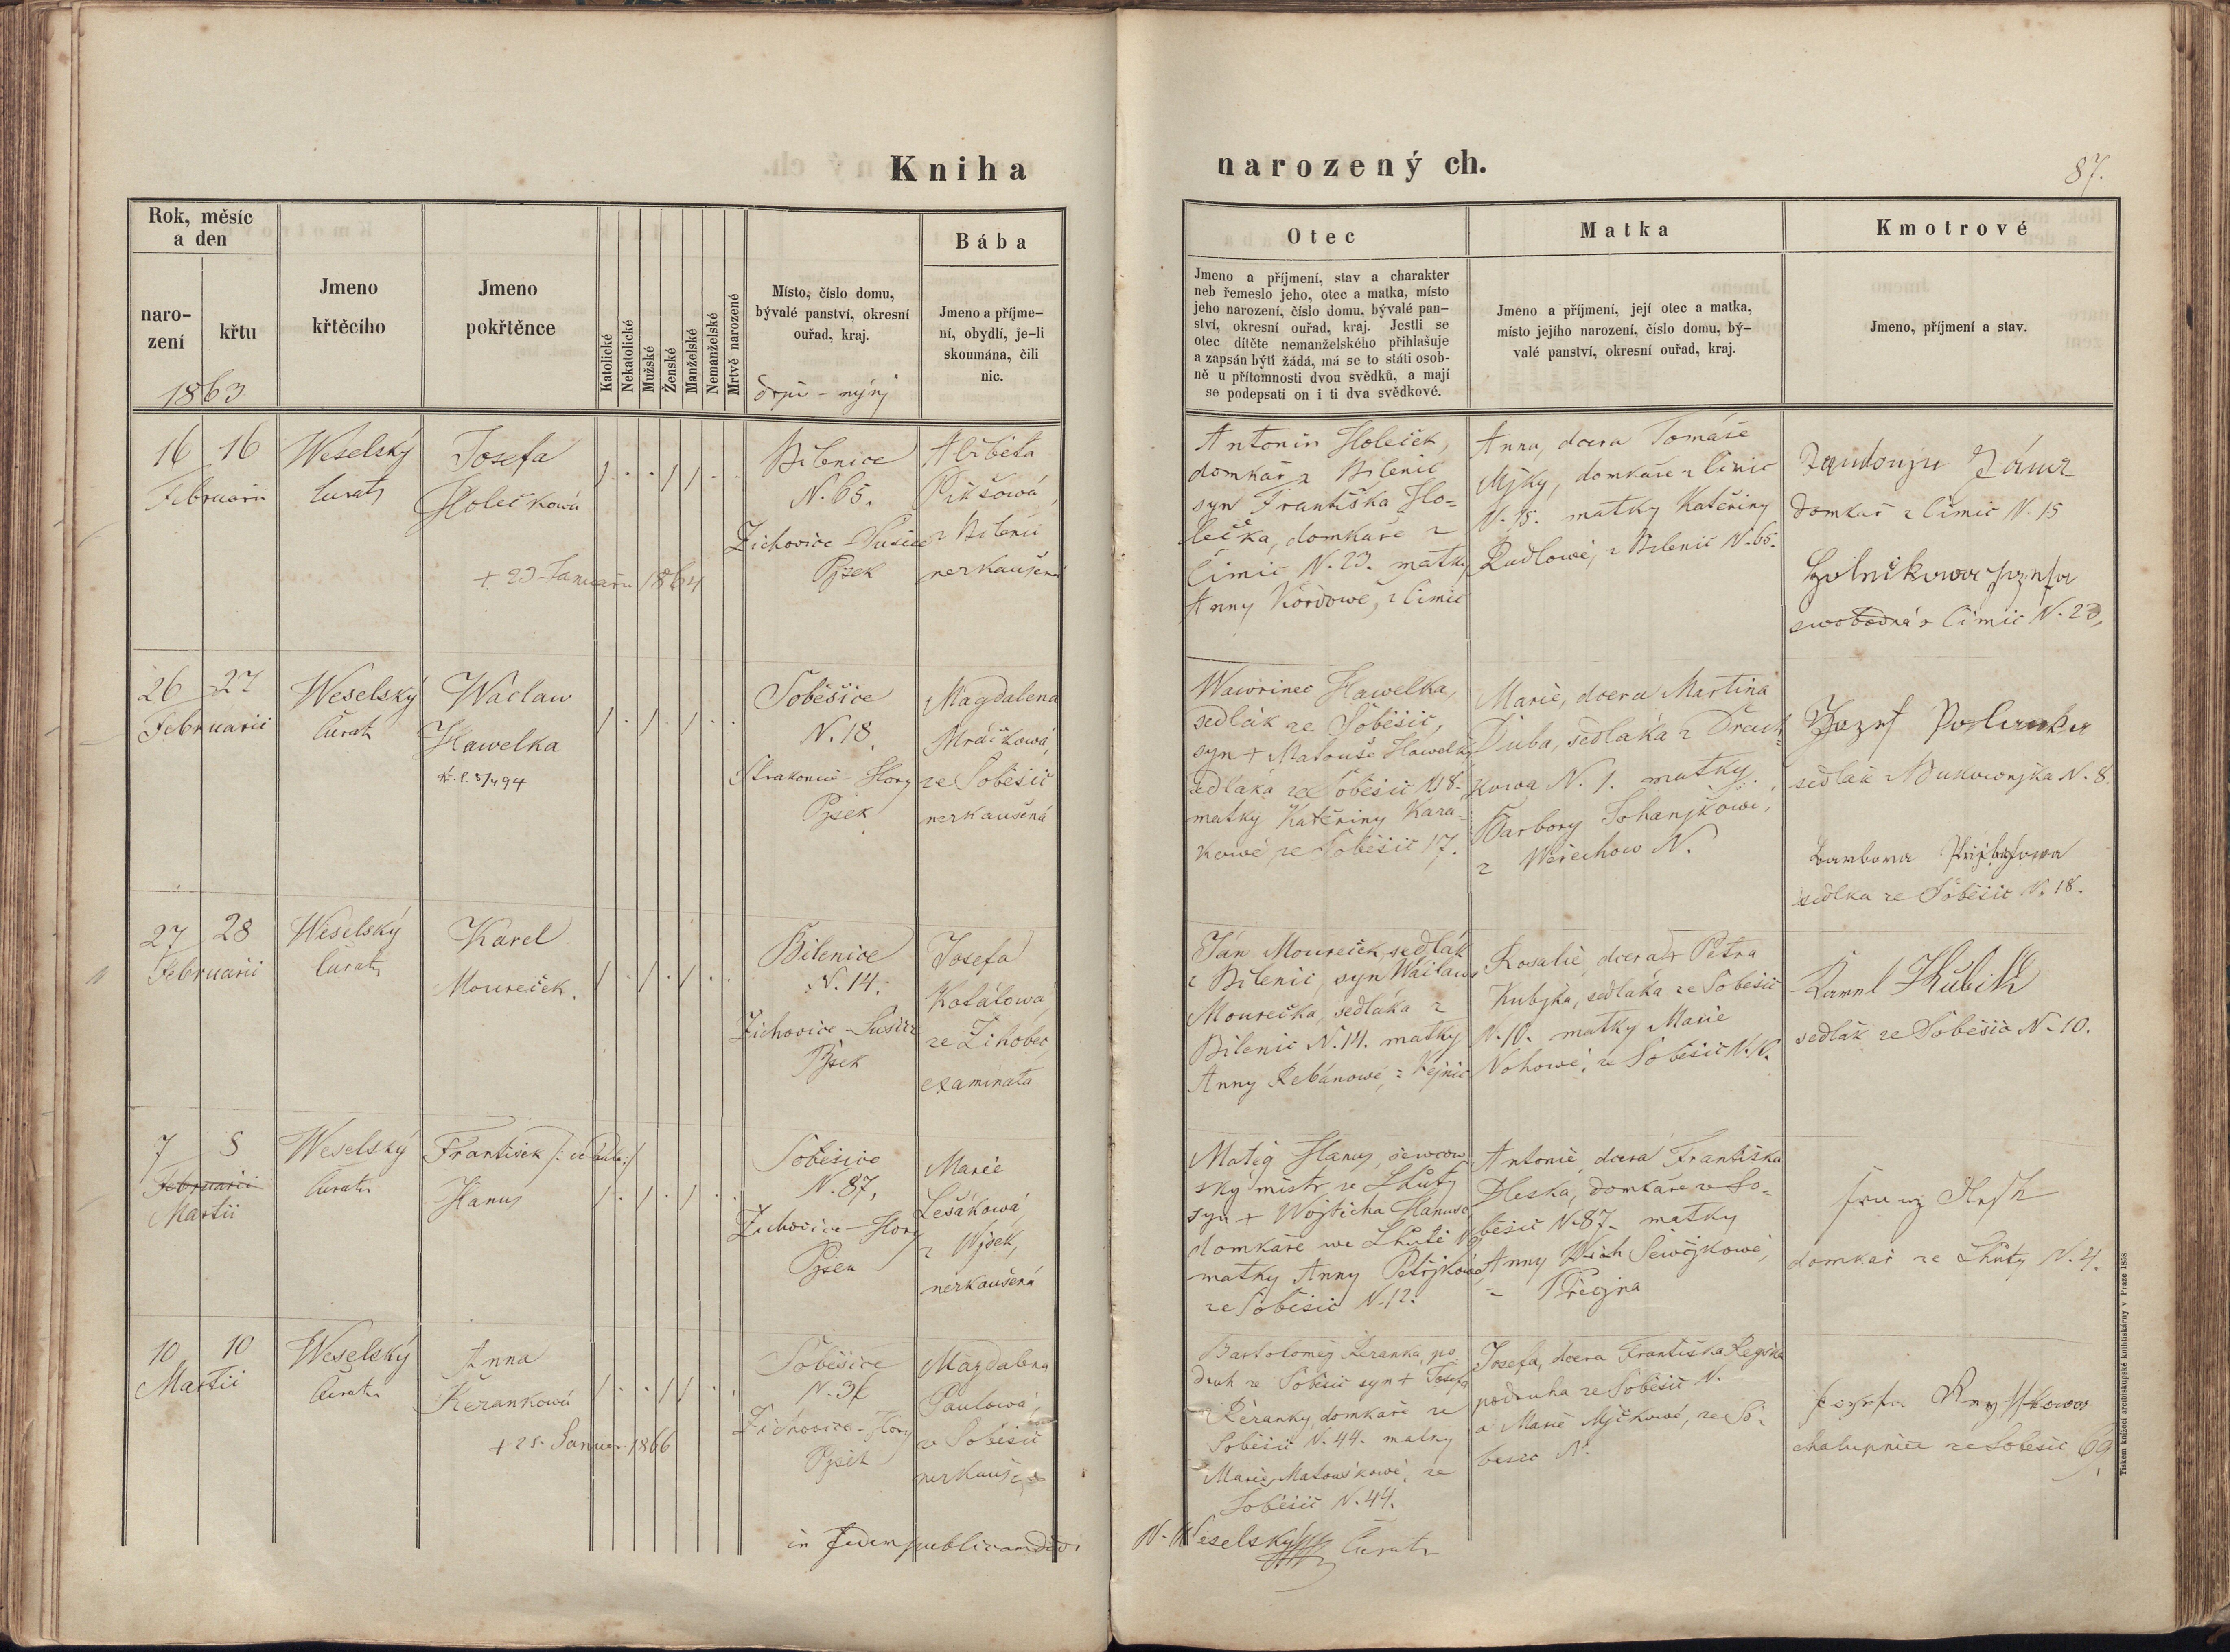 Kniha
narozený ch.
87.
Rok, měsíc
a den
naro-
zení
křtu
1863
Jmeno
křtěcího
Jmeno
pokřtěnce
Katolické
Nekatolické
Mužské
Ženské
Manželské
Nemanželské
Mrtvě narozené
Místo, číslo domu,
bývalé panství, okresní
ouřad, kraj.
Bába
Jmeno a příjme-
ní, obydlí, je-li
skoumána, čili
nic.
Otec
Jmeno a příjmení, stav a charakter
neb řemeslo jeho, otec a matka, místo
jeho narození, číslo domu, bývalé pan-
ství, okresní ouřad, kraj. Jestli se
otec dítěte nemanželského přihlašuje
a zapsán býti žádá, má se to státi osob-
ně u přítomnosti dvou svědků, a mají
se podepsati on i ti dva svědkové.
Matka
Jmeno a příjmení, její otec a matka,
místo jejího narození, číslo domu, bý-
valé panství, okresní ouřad, kraj.
Kmotrové
Jmeno, příjmení a stav.
16 16
Februarii
Weselský
Curat
Josefa
Holečkowá
+ 23 Januarii 1864
Bilenice
N. 65.
Žichovice - Sušice
Pjsek
Alžběta
Pikšowá,
z Bilenic
nezkaušená
Antonín Holeček,
domkař z Bilenic
syn Františka Ho-
lečka, domkaře z
Čimic N. 23. matky
Anny Kordowé, z Čimic
Anna, dcera Tomáše
Mjky, domkaře z Čimic
N. 15. matky Kateřiny
Rudlowé, z Bilenic N. 65.
domkař z Čimic N. 15
swobodná z Čimic N. 23,
26 27
Februarii
Weselský
Curat
Waclaw
Hawelka
Soběšice
N. 18.
Strakonic - Hory
Pjsek
Magdalena
Mráčkowá
ze Soběšic
nezkaušená
Wawřinec Hawelka,
sedlák ze Soběšic,
syn + Matouše Hawelky
sedláka ze Soběšic N 18.
matky Kateřiny Kara-
kowé, ze Soběšic 17.
Marie, dcera Martina
Duba, sedláka z Drach-
kowa N. 1. matky
Barbory Sohanjkowé,
z Wěřechow N.
Jozef
sedlák N. 8.
Barbora
sedlka ze Soběšic N. 18.
27 28
Februarii
Weselský
Curat
Karel
Moureček.
Bilenice
N. 14.
Žichovice - Sušice
Pjsek
Josefa
Kotálowá,
ze Žihobec,
examinata
Ján Moureček sedlák
z Bilenic, syn Wáclawa
Mourečka, sedláka z
Bilenic N. 14. matky
Anny Řebánowé, z Kejnic
Rosalie, dcera Petra
Kubjka, sedláka ze Soběšic
N. 10. matky Marie
Nohowé, ze Soběšic N. 10.
Karel Kubik
sedlák ze Soběšic N. 10.
7 8
Februarii
Martii
Weselský
Curat
František
Hanus
Soběšice
N. 87,
Žichovice - Hory
Pjsek
Marie
Lešákowá,
z Wjsek,
nezkaušená
Matěg Hanus, šewcow-
ský mistr ze Lhůty
syn + Wojtěcha Hanuse
domkaře we Lhůtě
matky Anny Petřjkowé
ze Soběšic N. 12.
Antonie, dcera Františka
Pleska, domkáře ze So-
běšic N. 87. matky
Anny Sewčjkowé,
domkař ze Lhůty N. 4.
10 10
Martii
Weselský
Curat
Anna
Řežankowá
+ 25 Januar 1866
Soběšice
N. 36
Žichovice - Hory
Pjsek
Magdalena
Paulowá,
ze Soběšic
nezkaušená
Bartoloměj Řežanka, po-
druh ze Soběšic syn + Josefa
Řežanky, domkaře ze
Soběšic N. 44. matky
Marie Matouškowé, ze
Soběšic N. 44.
Josefa, dcera Františka
podruha ze Soběšic N.
a Marie Mjčkowé, ze So-
běšic N.
chalupnice ze Soběšic 69,
in fidem publicam
N. Weselský Curat
Tiskem knížecí arcibiskupské knihtiskárny v Praze 1858